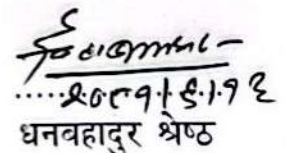 .....२०८१।६।१६
धनवहादुर श्रेष्ठ